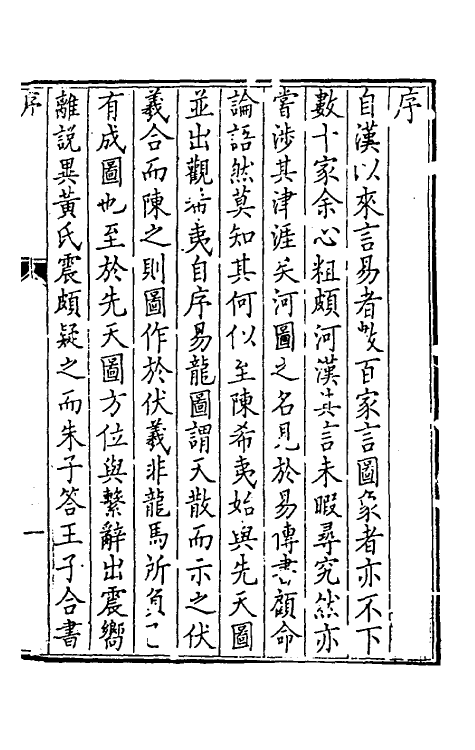 序
自漢以來言易者數百家言圖象者亦不下
數十家余心粗頗河漢其言未暇尋究然亦
嘗涉其津涯矣河圖之名見於易傳書顧命
論語然莫知其何似至陳希夷始與先天圖
並出觀希夷自序易龍圖謂天散而示之伏
羲合而陳之則圖作於伏羲非龍馬所負已
有成圖也至於先天圖方位與繫辭出震嚮
離說異黃氏震頗疑之而朱子答王子合書
序
一